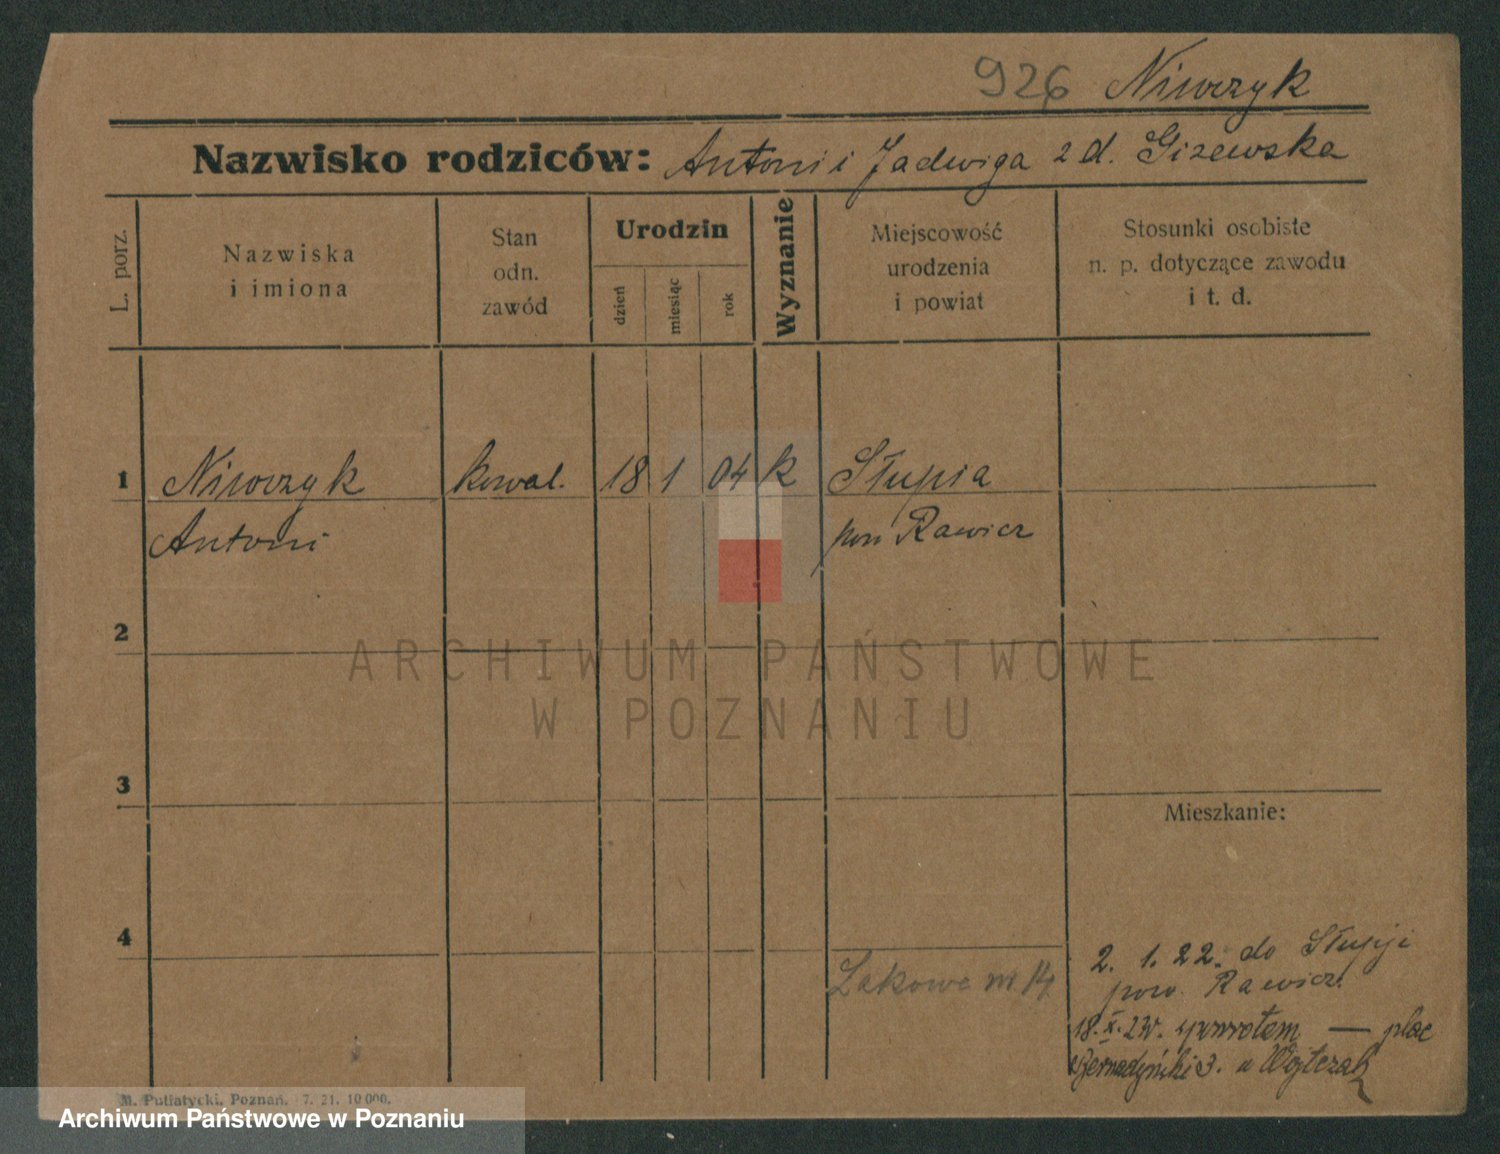 926 Niwczyk
Nazwisko rodziców: Antoni i Jadwiga z d. Gizewska
L. porz.
Nazwiska
i imiona
Stan
odn.
zawód
Urodzin
dzień
miesiąc
rok
Wyznanie
Miejscowość
urodzenia
i powiat
Stosunki osobiste
n. p. dotyczące zawodu
i t. d.
1 Niwczyk kowal. 18 1 04 k Słupia
Antoni pow Rawicz
2
ARCHIWUM PAŃSTWOWE
W POZNANIU
3
Mieszkanie:
4
2. 1. 22. do Słupji
pow. Rawicz
Łąkowa nr 14
18. X. 23r. spowrotem — plac
Bernadyński 3. u Wojtczak
M. Putiatycki, Poznań. 7. 21. 10 000.
Archiwum Państwowe w Poznaniu